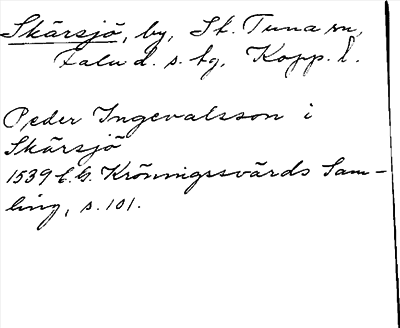 Skärsjö, by, St. Tuna sn,
Falu d. s. tg, Kopp. l.
Peder Ingevalsson i
Skärsjö
1539 f. G. Kröningssvärds Sam-
ling, s. 101.